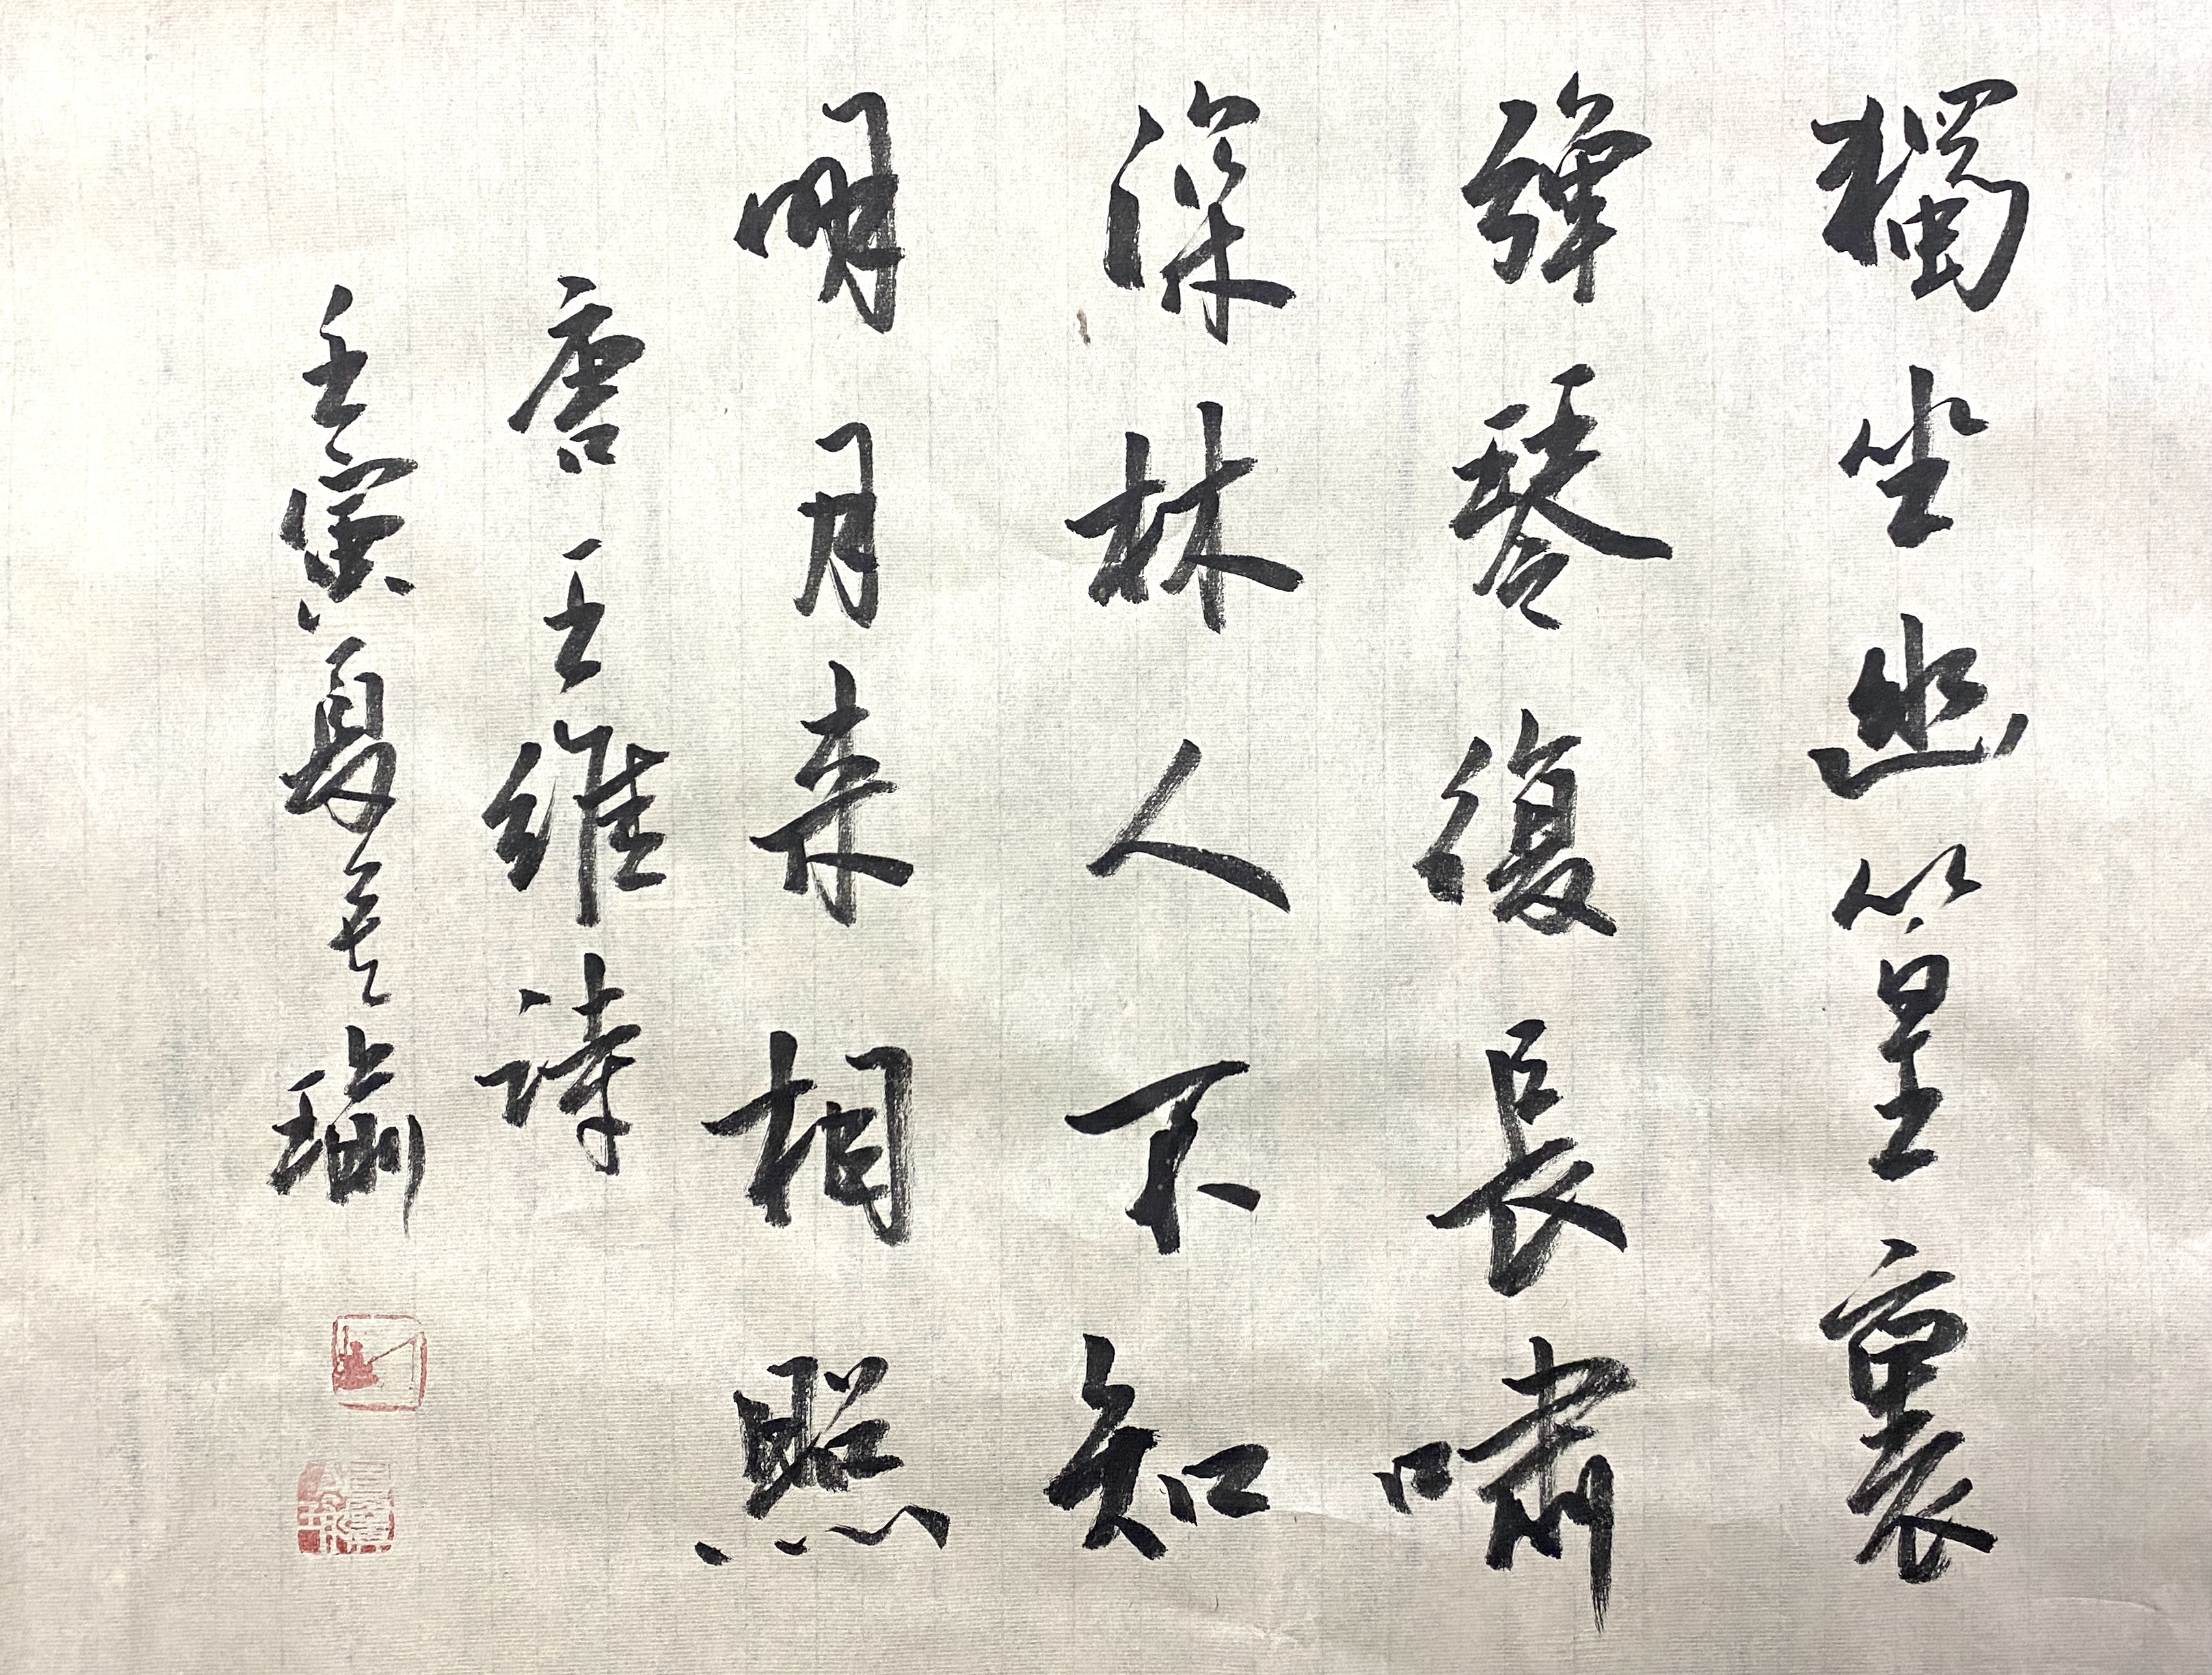 獨坐幽篁裏
彈琴復長嘯
深林人不知
明月来相照
唐王維詩
壬寅夏瑜